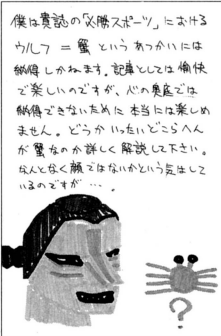 僕は貴誌の「必勝スポーツ」における
ウルフ = 蟹 というあつかいには
納得しかねます。記事としては愉快
で楽しいのですが、心の奥底では
納得できないために本当には楽しめ
ません。どうかいったいどこらへん
が蟹なのか詳しく解説して下さい。
なんとなく顔ではないかという気はして
いるのですが…。
?